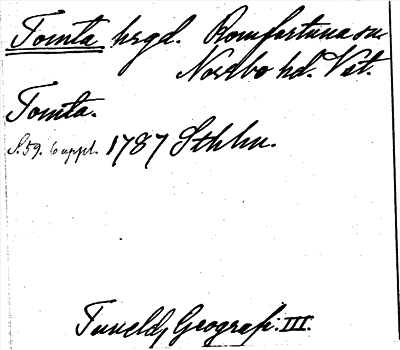 Tomta hrgd. Romfartuna sn.
Norrbo hd. Vst.
Tomta.
S. 59. 6 uppl. 1787 Sthlm.
Tuneld, Geografi. III.